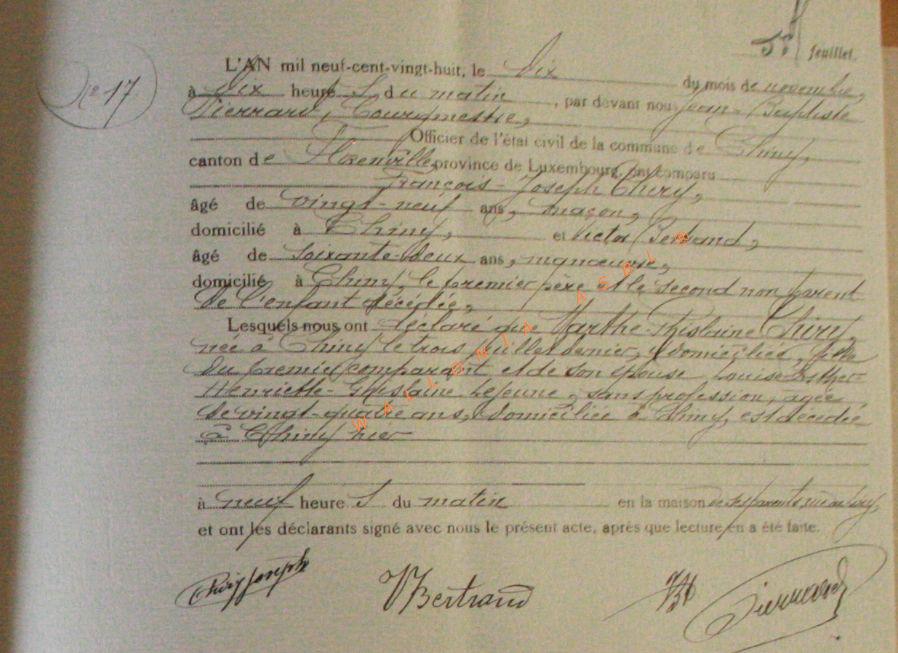 5e feuillet.
No 17.
L'AN mil neuf-cent-vingt-huit, le Dix du mois de novembre,
à Dix heures du matin, par devant nous Jean-Baptiste
Pierrard, Bourgmestre,
Officier de l'état civil de la commune de Chiny,
canton de Florenville province de Luxembourg, ont comparu
François-Joseph Chiry,
âgé de vingt-neuf ans, maçon,
domicilié à Chiny, et Victor Bertrand,
âgé de soixante-deux ans, manœuvre,
domicilié à Chiny, le premier père et le second non parent
de l'enfant décédée,
Lesquels nous ont déclaré que Marthe-Ghislaine Chiry,
née à Chiny le trois juillet dernier, y domiciliée, fille
du premier comparant et de son épouse Louise-Esther-
Henriette-Ghislaine Lejeune, sans profession, âgée
de vingt-quatre ans, domiciliée à Chiny, est décédée
à Chiny hier
à neuf heures du matin en la maison de ses parents
et ont les déclarants signé avec nous le présent acte, après que lecture en a été faite.
Chiry Joseph VBertrand JB Pierrard